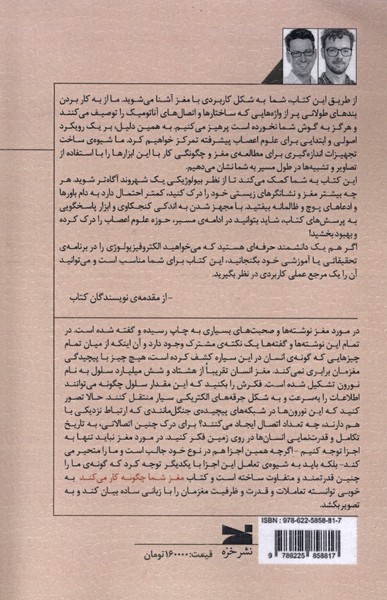 از طریق این کتاب، شما به شکل کاربردی با مغز آشنا می‌شوید. ما از به کار بردن
بندهای طولانی پر از واژه‌هایی که ساختارها و اتصال‌های آناتومیک را توصیف می‌کنند
و هرگز به گوش شما نخورده است پرهیز می‌کنیم. به همین دلیل، بر یک رویکرد
اصولی و ابتدایی برای علوم اعصاب پیشرفته تمرکز خواهیم کرد. ما شیوه‌ی ساخت
تجهیزات اندازه‌گیری برای مطالعه‌ی مغز و چگونگی کار با این ابزارها را با استفاده از
تصاویر و تشبیه‌ها در طول مسیر به شما نشان می‌دهیم.
این کتاب به شما کمک می‌کند تا از نظر بیولوژیکی یک شهروند آگاه‌تر شوید. هر
چه بیشتر مغز و نشانگرهای زیستی خود را درک کنید، کمتر احتمال دارد به دام باورها
و ادعاهای پوچ و ظالمانه بیفتید. با مجهز شدن به اندکی کنجکاوی و ابزار پاسخگویی
به پرسش‌های کتاب، شاید بتوانید در ادامه‌ی مسیر، حوزه علوم اعصاب را درک کرده
و بهبود بخشید!
اگر هم یک دانشمند حرفه‌ای هستید که می‌خواهید الکتروفیزیولوژی را در برنامه‌ی
تحقیقاتی یا آموزشی خود بگنجانید، این کتاب برای شما مناسب است و می‌توانید
آن را یک مرجع عملی کاربردی در نظر بگیرید.
- از مقدمه‌ی نویسندگان کتاب
در مورد مغز نوشته‌ها و صحبت‌های بسیاری به چاپ رسیده و گفته شده است. در
تمام این نوشته‌ها و گفته‌ها یک نکته‌ی مشترک وجود دارد و آن اینکه از میان تمام
چیزهایی که گونه‌ی انسان در این سیاره کشف کرده است، هیچ چیز با پیچیدگی
مغزمان برابری نمی‌کند. مغز انسان تقریباً از هشتاد و شش میلیارد سلول به نام
نورون تشکیل شده است. فکرش را بکنید که این مقدار سلول چگونه می‌توانند
اطلاعات را به‌سرعت و به شکل جرقه‌های الکتریکی سیار منتقل کنند. حالا تصور
کنید که این نورون‌ها در شبکه‌های پیچیده‌ی جنگل‌مانندی که ارتباط نزدیکی با
هم دارند، چه تعداد اتصال ایجاد می‌کنند؟ برای درک چنین اتصالاتی، به تاریخ
تکامل و قدرت‌نمایی انسان‌ها در روی زمین فکر کنید. در مورد مغز نباید تنها به
اجزا توجه کنیم -اگرچه همین اجزا هم در نوع خود جالب است و ما را متحیر می
کند- بلکه باید به شیوه‌ی تعامل این اجزا با یکدیگر توجه کرد که گونه‌ی ما را
چنین قدرتمند و متفاوت ساخته است و کتاب مغز شما چگونه کار می‌کند به
خوبی توانسته تعاملات و قدرت و ظرفیت مغزمان را با زبانی ساده بیان کند و به
تصویر بکشد.
ISBN: 978-622-5858-81-7
9 786225 858817
نشر خزه
قیمت: ۱۶۰۰۰۰ تومان